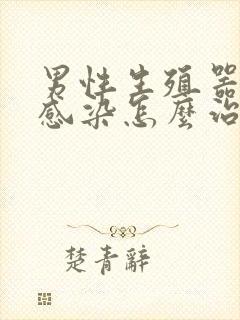 男性生殖器
感染怎麼治
楚青辭